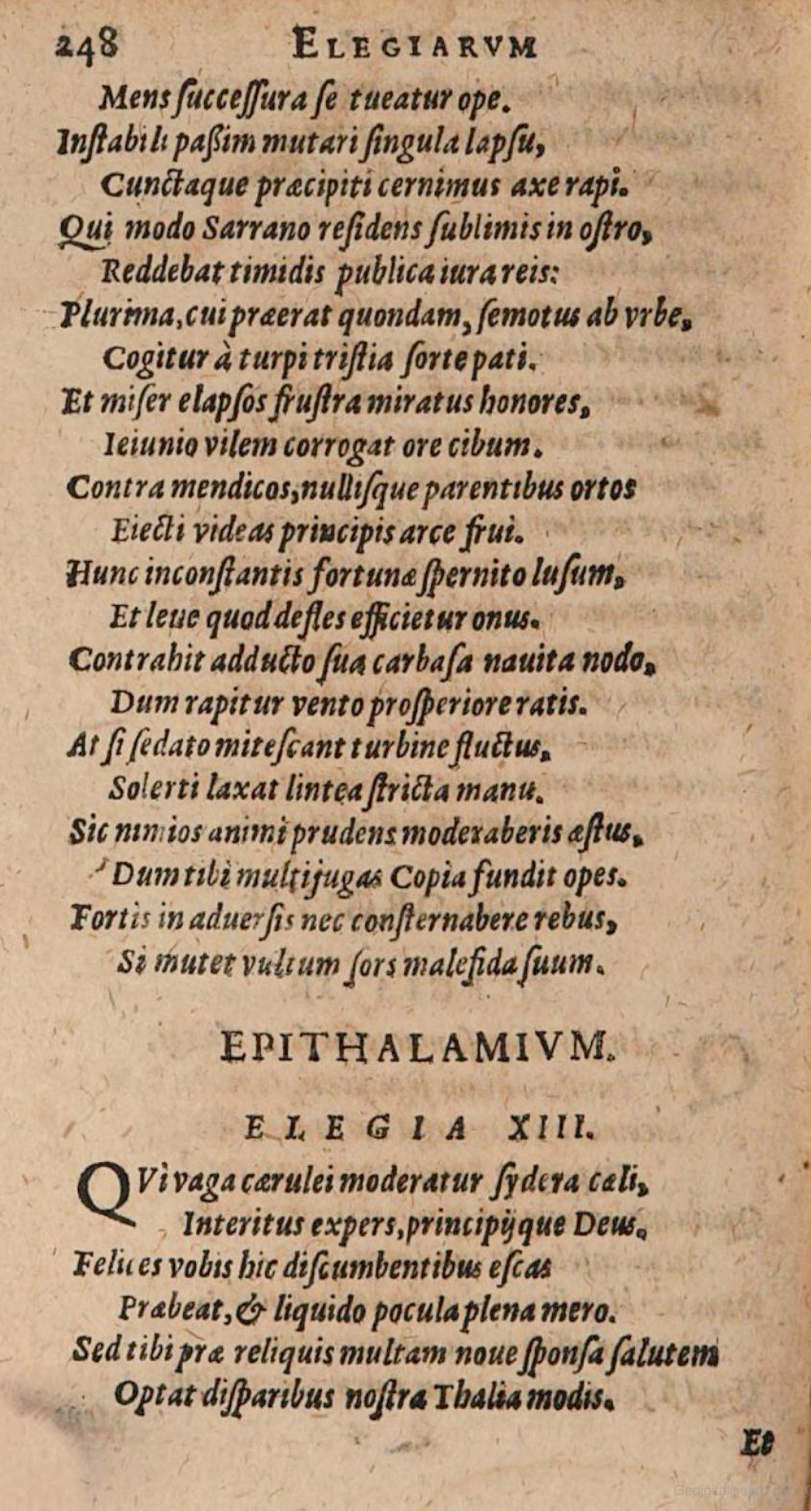 248 ELEGIARVM
Mens ſucceſſura ſe tueatur ope.
Inſtabili paſſim mutari ſingula lapſu,
Cunctaque præcipiti cernimus axe rapi.
Qui modo Sarrano reſidens ſublimis in oſtro,
Reddebat timidis publica iura reis:
Plurima, cui præerat quondam, ſemotus ab vrbe,
Cogitur à turpi triſtia ſorte pati.
Et miſer elapſos fruſtra miratus honores,
Ieiunio vilem corrogat ore cibum.
Contra mendicos, nulliſque parentibus ortos
Eiecti videas principis arce frui.
Hunc inconſtantis fortunæ ſpernito luſum,
Et leue quod defles efficietur onus.
Contrahit adducto ſua carbaſa nauita nodo,
Dum rapitur vento proſperiore ratis.
At ſi ſedato miteſcant turbine fluctus,
Solerti laxat lintea ſtricta manu.
Sic nimios animi prudens moderaberis æſtus,
Dum tibi multijugas Copia fundit opes.
Fortis in aduerſis nec conſternabere rebus,
Si mutet vultum ſors malefida ſuum.
EPITHALAMIVM.
ELEGIA XIII.
QVi vaga cærulei moderatur ſydera cæli,
Interitus expers, principijque Deus,
Felices vobis hic diſcumbentibus eſcas
Præbeat, & liquido pocula plena mero.
Sed tibi præ reliquis multam noue ſponſa ſalutem
Optat diſparibus noſtra Thalia modis.
Et